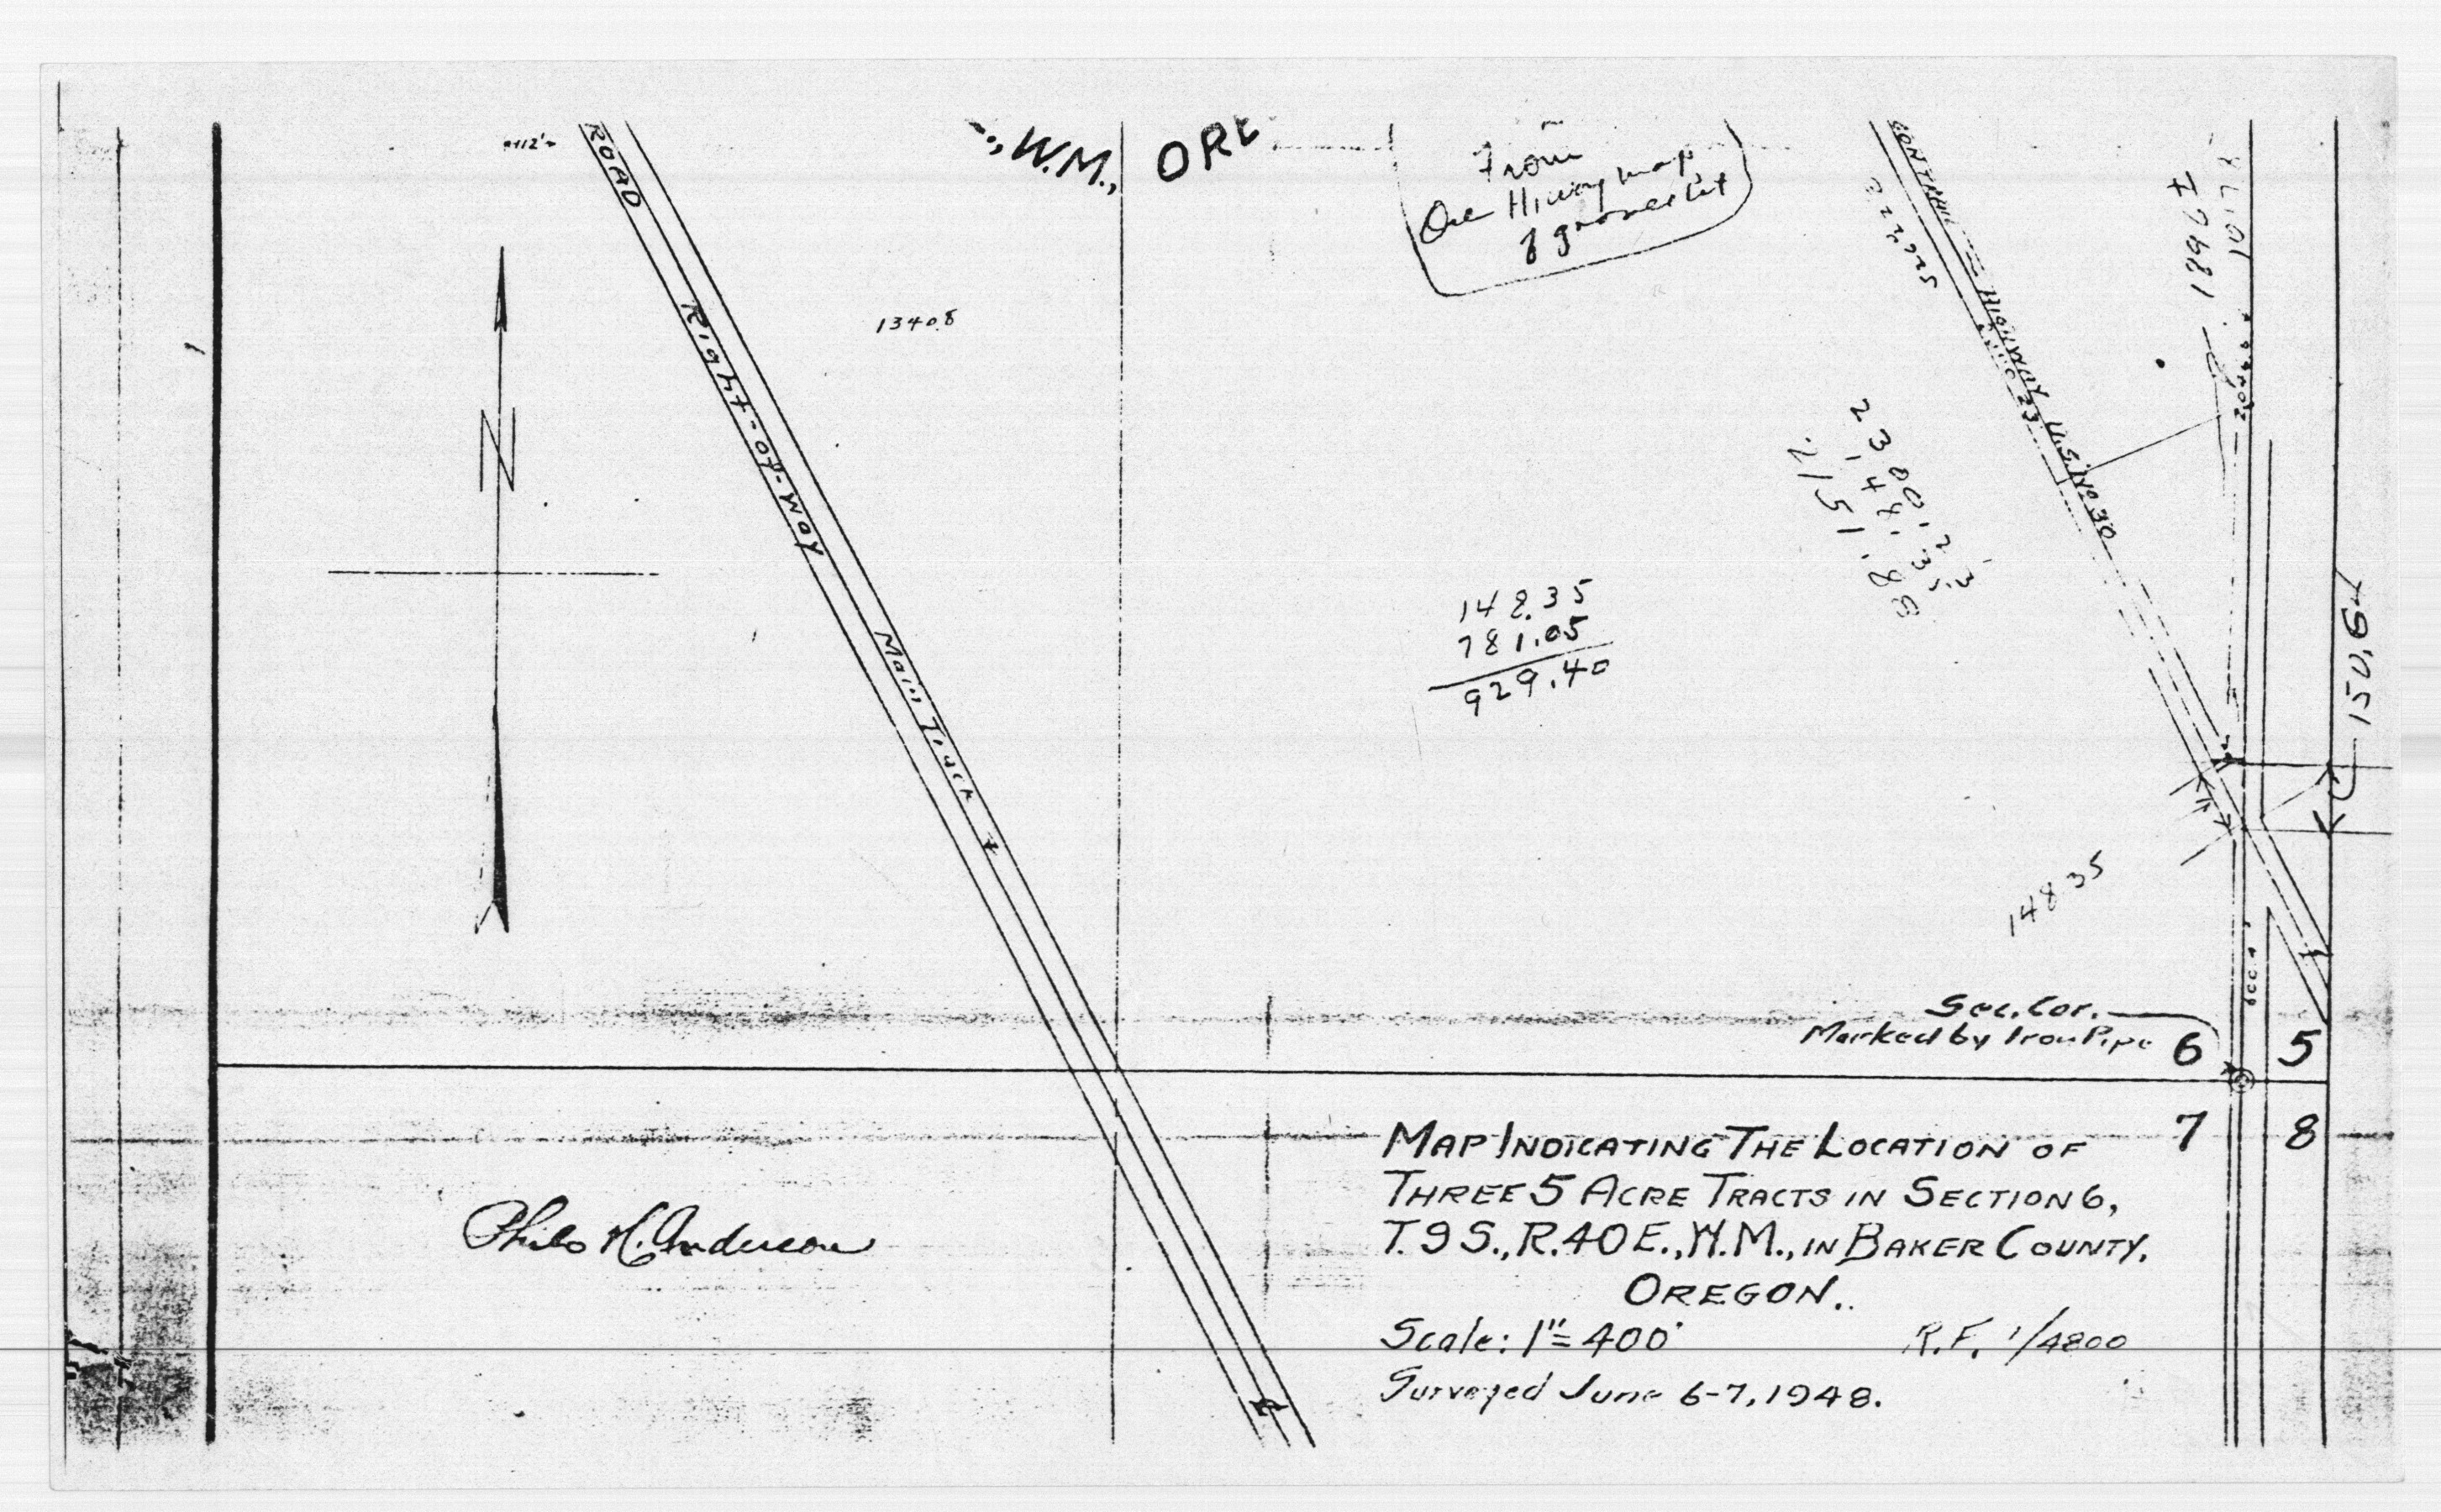 W.M., ORE
From
Ore Hiway map
ROAD Right-of-Way Main Track
N
1340.8
Highway U.S. No 30
1896±
2380.23
148.35
2151.88
148.35
781.05
929.40
150.64
148 35
Sec. Cor.
Marked by Iron Pipe
6 5
7 8
MAP INDICATING THE LOCATION OF
THREE 5 ACRE TRACTS IN SECTION 6,
T. 9 S., R. 40 E., W.M., IN BAKER COUNTY,
OREGON.
Scale: 1" = 400'
R.F. 1/4800
Surveyed June 6-7, 1948.
Philo M. Anderson